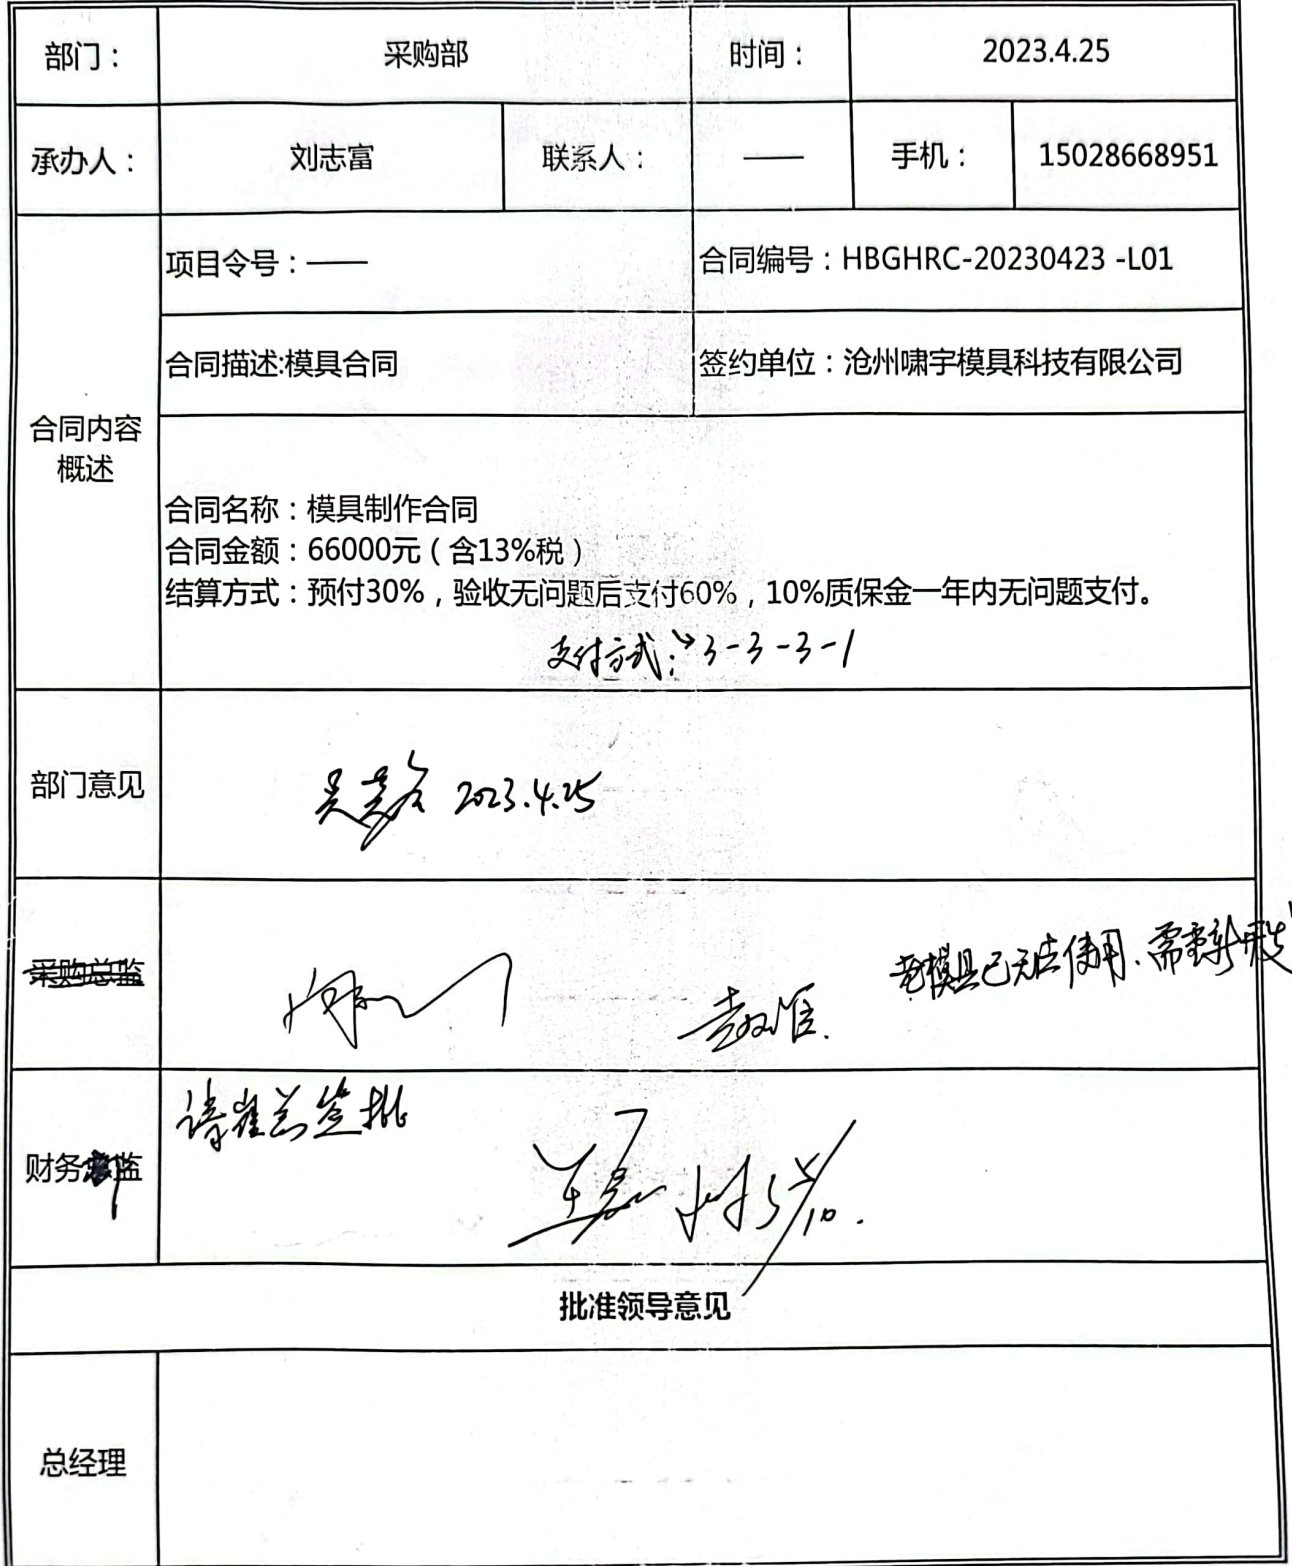 部门： 采购部 时间： 2023.4.25
承办人： 刘志富 联系人： —— 手机： 15028668951
项目令号：—— 合同编号：HBGHRC-20230423 -L01
合同描述:模具合同 签约单位：沧州啸宇模具科技有限公司
合同内容
概述
合同名称：模具制作合同
合同金额：66000元（含13%税）
结算方式：预付30%，验收无问题后支付60%，10%质保金一年内无问题支付。
支付方式：3-3-3-1
部门意见 2023.4.25
采购总监
模具已无法使用、需重新开
财务 监 请崔总签批
5/10.
批准领导意见
总经理